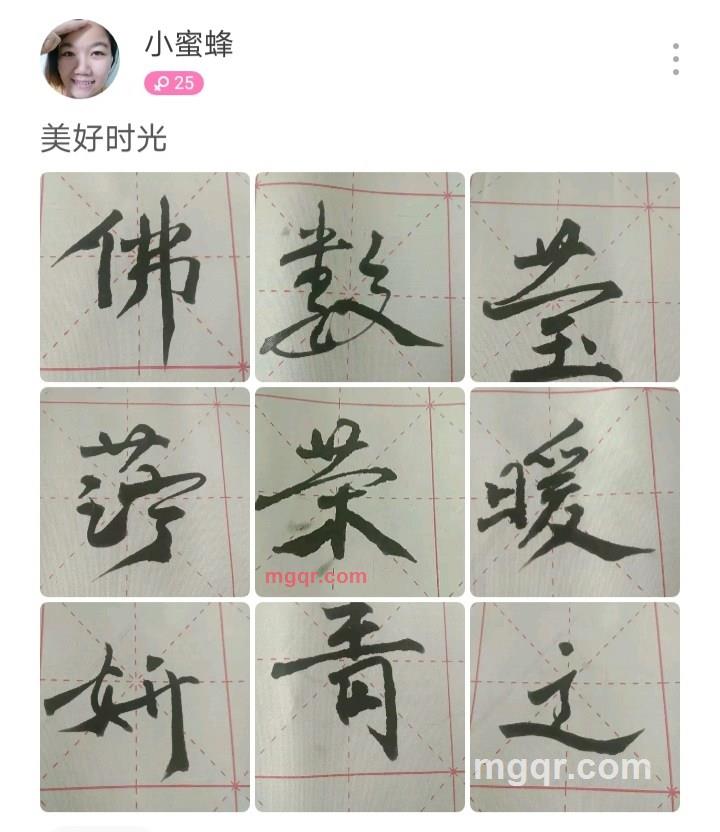 小蜜蜂
25
美好时光
佛 数 莹
荣 暖
mgqr.com
妍 青 之
mgqr.com